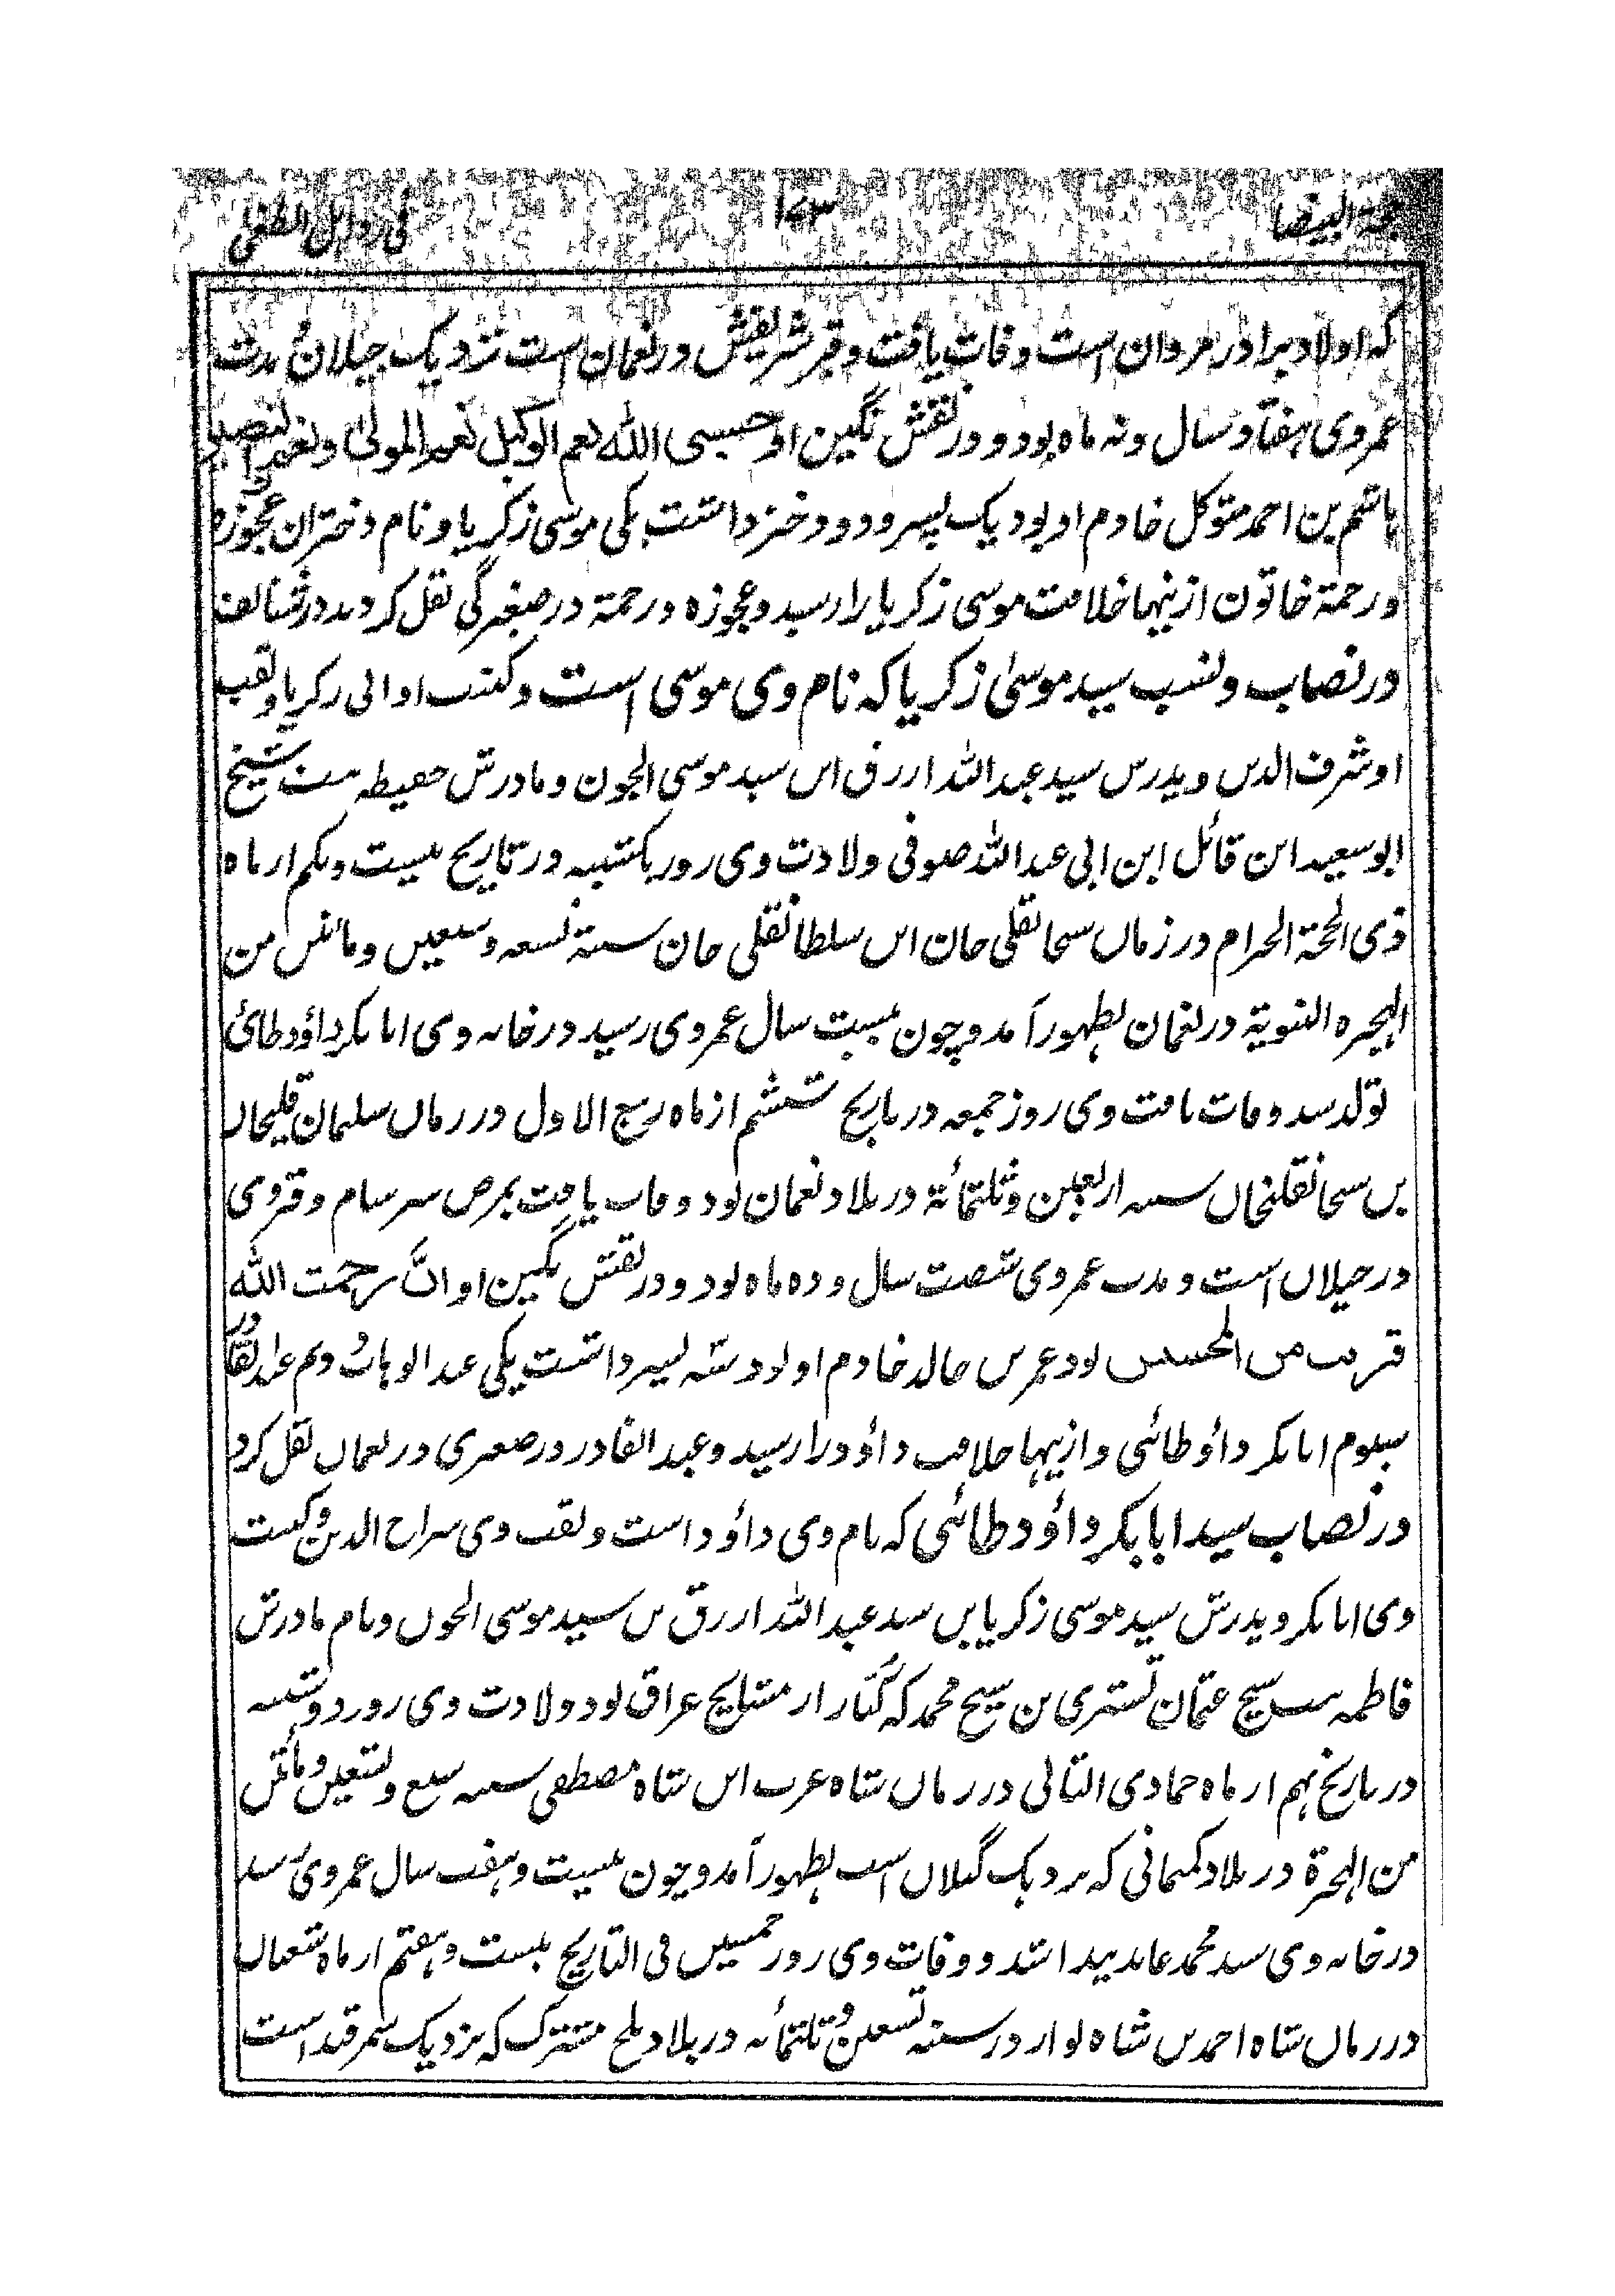 حجة البیضا ۱۴۳ فی رذائل الطغی
که اولاد برادر مروان است وفات یافت و قبر شریفش در نعمان است نزدیک جیلان و مدت
عمر وی هفتاد سال و نه ماه بود و در نقش نگین او حسبی الله نعم الوکیل نعم المولی و نعم النصیر و
هاشم بن احمد متوکل خادم او بود یک پسر و دو دختر داشت یکی موسی زکریا و نام دختران عجوزه
و رحمة خاتون ازینها خلافت موسی زکریا را رسید و عجوزه و رحمة در صغیرگی نقل کردند
در نصاب و نسب سید موسیٰ زکریا که نام وی موسی است و کنیت او ابی زکریا و لقب
او شرف الدین و پدرش سید عبد الله ازرق ابن سید موسی الجون و مادرش حفیظه بنت شیخ
ابو سعید ابن قائل ابن ابی عبد الله صوفی ولادت وی روز یکشنبه در تاریخ بیست و یکم از ماه
ذی الحجة الحرام در زمان سبحانقلی خان ابن سلطانقلی خان سنة تسعه و سبعین و مائتین من
الهجره النبویة در نعمان بظهور آمد و چون بیست سال عمر وی رسید در خانه وی ابابکر داؤد طائی
تولد شد وفات یافت وی روز جمعه در تاریخ ششم از ماه ربیع الاول در زمان سلیمان قلیخان
بن سبحانقلیخان سنه اربعین و ثلثمائة در بلاد نعمان بود وفات یافت بمرض سرسام و قبر وی
در جیلان است و مدت عمر وی شصت سال و ده ماه بود و در نقش نگین او انَّ رحمت الله
قریب من المحسنین بود عمر بن خالد خادم او بود سه پسر داشت یکی عبد الوهاب دوم عبد القادر
سیوم ابابکر داؤ طائی و ازینها خلافت داؤد را رسید و عبد القادر در صغری در نعمان نقل کرد
در نصاب سید ابابکر داؤد طائی که نام وی داؤد است و لقب وی سراج الدین و کنیت
وی ابابکر و پدرش سید موسی زکریا بن سید عبد الله ازرق بن سید موسی الجون و نام مادرش
فاطمه بنت شیخ عثمان تستری بن شیخ محمد که کبار از مشایخ عراق بود ولادت وی روز دوشنبه
در تاریخ نهم از ماه جمادی الثانی در زمان شاه عرب ابن شاه مصطفی سنه سبع و تسعین و مائتین
من الهجرة در بلاد که نزدیک گیلان است بظهور آمد و چون بیست و هفت سال عمر وی رسید
در خانه وی سید محمد عابد پیدا شد و وفات وی روز خمیس فی التاریخ بیست و هفتم از ماه شعبان
در زمان شاه احمد بن شاه در سنه تسعین و ثلثمائه در بلاد بلخ مشترک که نزدیک سمرقند است